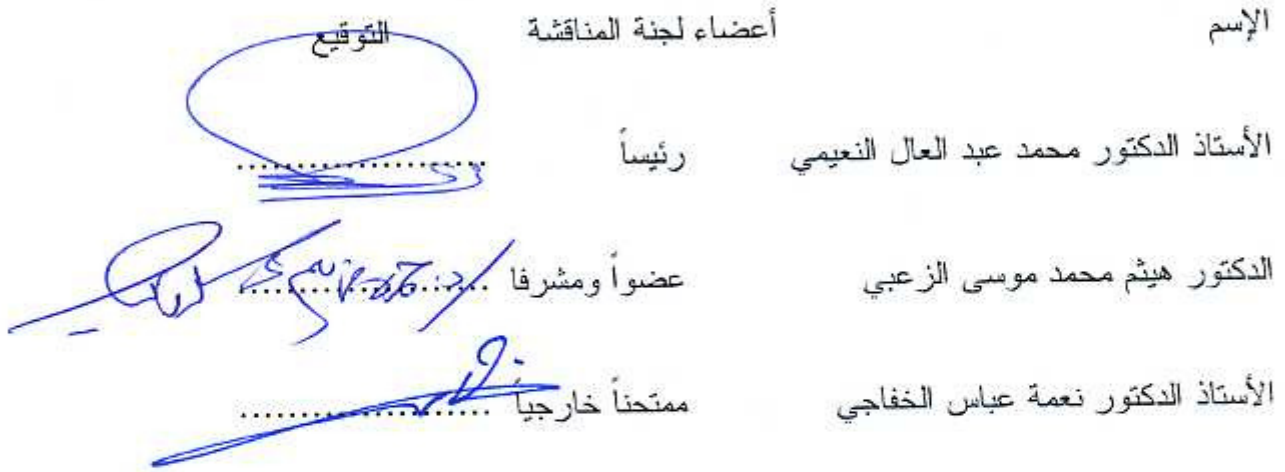 الإسم أعضاء لجنة المناقشة التوقيع
الأستاذ الدكتور محمد عبد العال النعيمي رئيساً ....................
الدكتور هيثم محمد موسى الزعبي عضواً ومشرفا ....................
الأستاذ الدكتور نعمة عباس الخفاجي ممتحناً خارجياً ....................